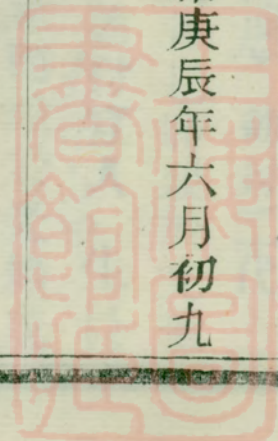 庚辰年六月初九